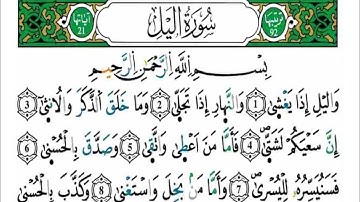 ترتيبها 92 سُورَةُ الَّيْل آياتها 21
بِسْمِ اللَّهِ الرَّحْمَٰنِ الرَّحِيمِ
وَالَّيْلِ إِذَا يَغْشَىٰ ١ وَالنَّهَارِ إِذَا تَجَلَّىٰ ٢ وَمَا خَلَقَ الذَّكَرَ وَالْأُنثَىٰ ٣
إِنَّ سَعْيَكُمْ لَشَتَّىٰ ٤ فَأَمَّا مَنْ أَعْطَىٰ وَاتَّقَىٰ ٥ وَصَدَّقَ بِالْحُسْنَىٰ ٦
فَسَنُيَسِّرُهُ لِلْيُسْرَىٰ ٧ وَأَمَّا مَنْ بَخِلَ وَاسْتَغْنَىٰ ٨ وَكَذَّبَ بِالْحُسْنَىٰ